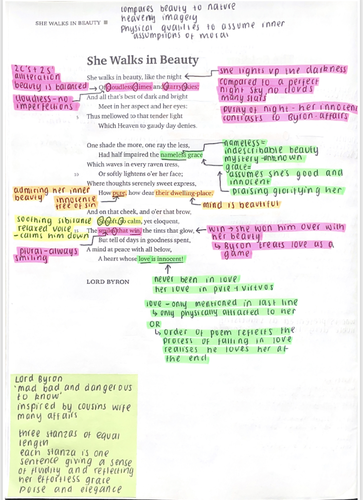 compares beauty to nature
heavenly imagery
physical qualities to assume inner
assumptions of moral
SHE WALKS IN BEAUTY
She Walks in Beauty
2C's + 2S'
alliteration
beauty is balanced
cloudless - no
imperfections
She walks in beauty, like the night
Of cloudless climes and starry skies;
And all that's best of dark and bright
Meet in her aspect and her eyes:
Thus mellowed to that tender light
Which Heaven to gaudy day denies.
she lights up the darkness
compared to a perfect
night sky no clouds
many stars
purity of night - her innocence
contrasts to Byron - affairs
One shade the more, one ray the less,
Had half impaired the nameless grace
Which waves in every raven tress,
Or softly lightens o'er her face;
Where thoughts serenely sweet express,
How pure, how dear their dwelling-place.
nameless =
indescribable beauty
mystery - unknown
grace =
assumes she's good and
innocent
praising glorifying her
admiring her inner
beauty
innocence
free of sin
mind is beautiful
And on that cheek, and o'er that brow,
So soft, so calm, yet eloquent,
The smiles that win, the tints that glow,
But tell of days in goodness spent,
A mind at peace with all below,
A heart whose love is innocent!
soothing sibilance
relaxed voice
- calms him down
plural - always
smiling
win → she won him over with
her beauty
↳ Byron treats love as a
game
LORD BYRON
never been in love
her love is pure + virtuous
love - only mentioned in last line
↳ only physically attracted to her
OR
↳ order of poem reflects the
process of falling in love
realises he loves her at
the end.
Lord Byron
'mad bad and dangerous
to know'
inspired by cousins wife
many affairs
three stanzas of equal
length
each stanza is one
sentence giving a sense
of fluidity and reflecting
her effortless grace
poise and elegance